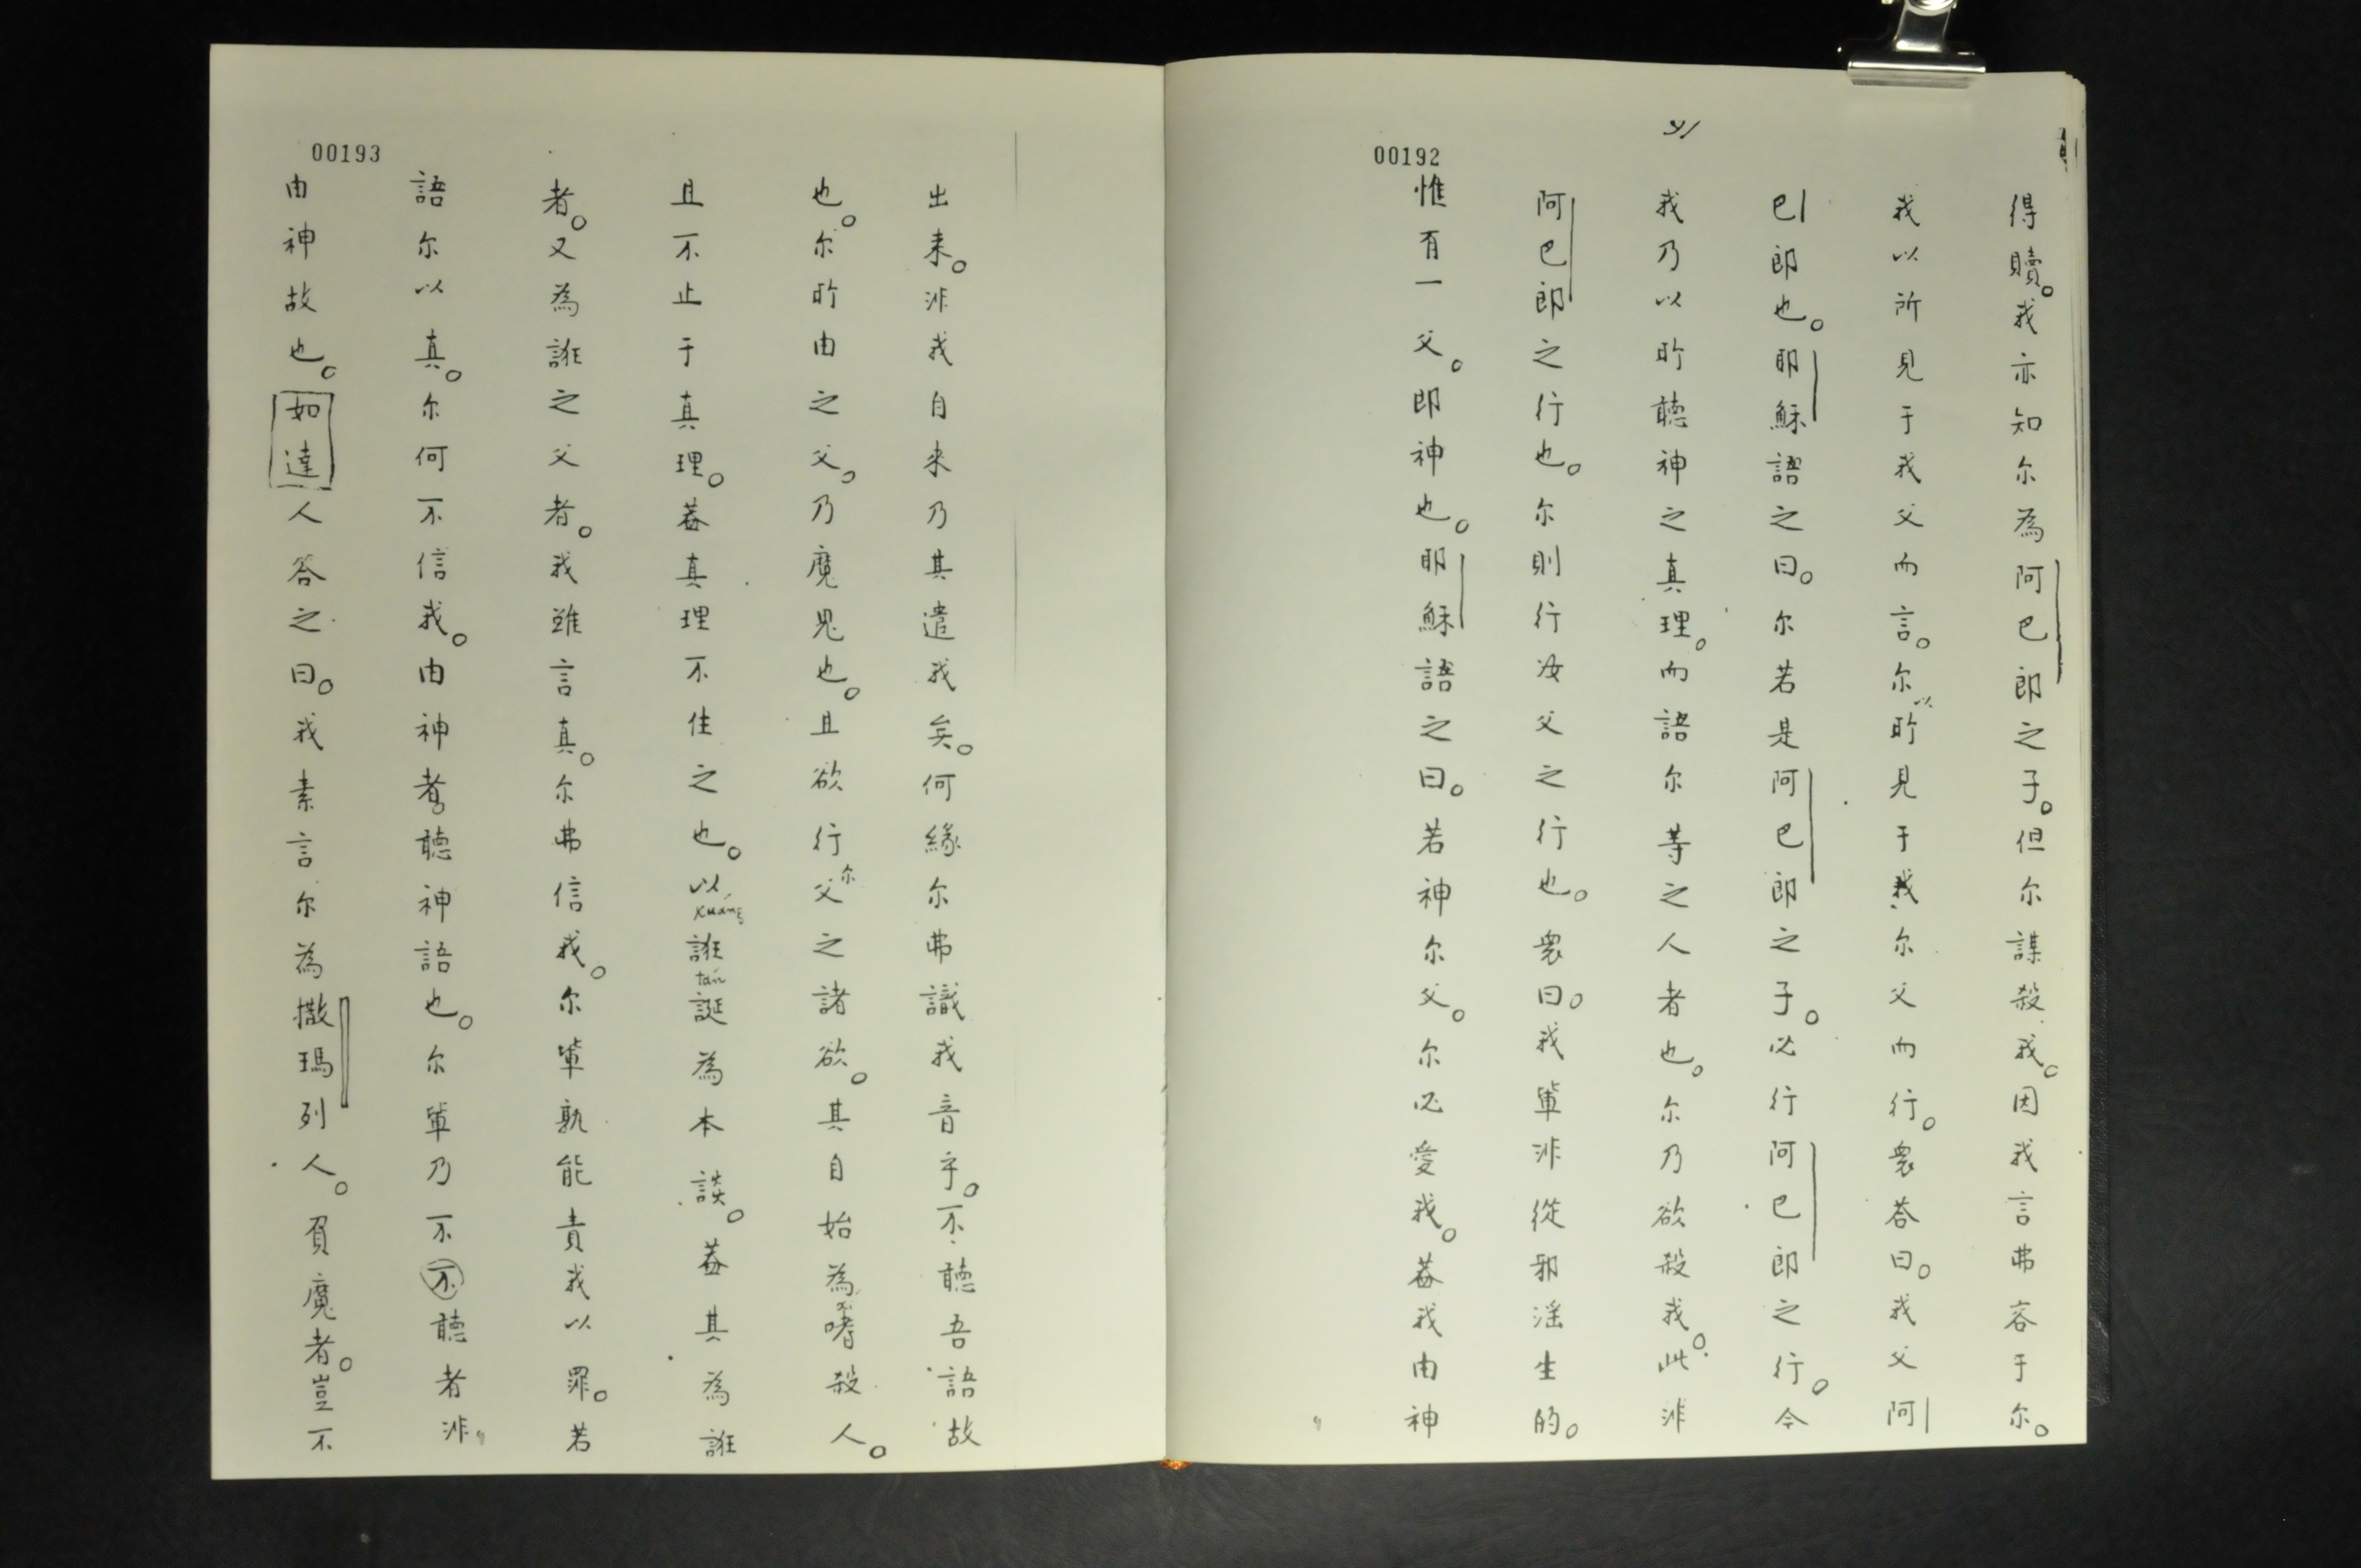 41
00192
得贖。我亦知尔為阿巴郎之子。但尔謀殺我。因我言弗容于尔。
我以所見于我父而言。尔以所見于我尔父而行。衆荅曰。我父阿
巴郎也。耶穌語之曰。尔若是阿巴郎之子。必行阿巴郎之行。今
我乃以所聽神之真理。而語尔等之人者也。尔乃欲殺我。此非
阿巴郎之行也。尔則行汝父之行也。衆曰。我輩非從邪淫生的。
惟有一父。即神也。耶穌語之曰。若神尔父。尔必愛我。蓋我由神
00193
出来。非我自来乃其遣我矣。何緣尔弗識我音乎。不聽吾語故
也。尔所由之父。乃魔鬼也。且欲行尔父之諸欲。其自始為嗜殺人。
且不止于真理。蓋真理不住之也。以誑誕為本談。蓋其為誑
xuáng
tań
者。又為誑之父者。我雖言真。尔弗信我。尔輩孰能責我以罪。若
語尔以真。尔何不信我。由神者。聽神語也。尔輩乃不不聽者非。
由神故也。如達人答之曰。我素言尔為撒瑪列人。負魔者。豈不